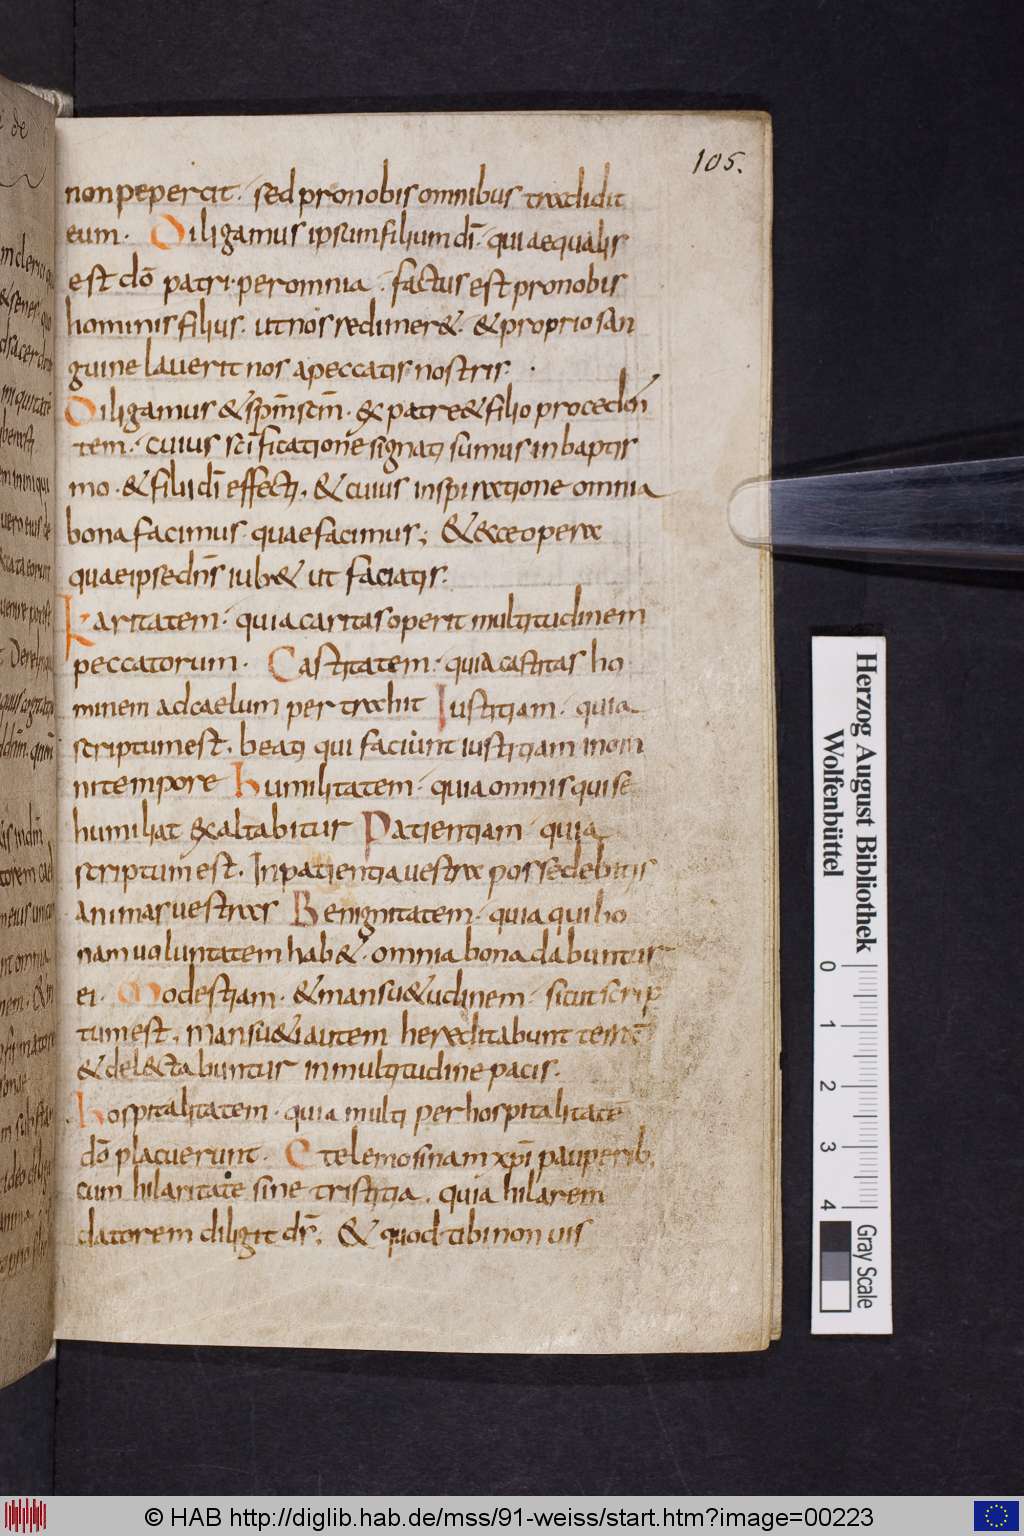 105.
non pepercit. sed pro nobis omnibus tradidit
eum. Diligamus ipsum filium dī. qui aequalis
est dō patri. per omnia. factus est pro nobis
hominis filius. ut nos redimer&. & proprio san
guine lauerit nos a peccatis nostris.
Diligamus & spm̄ scm̄. ex patre & filio proceden
tem. cuius scīficatione signati sumus in baptis
mo. & filii dī effecti. & cuius inspiratione omnia
bona facimus. quae facimus; & ecce opera
quae ipse dn̄s iub& ut faciatis.
Karitatem. quia caritas operit multitudinem
peccatorum. Castitatem. quia castitas ho
minem ad caelum pertrahit Iustitiam. quia
scriptum est. beati qui faciunt iustitiam in om
ni tempore humilitatem. quia omnis qui se
humiliat exaltabitur Patientiam. quia
scriptum est. In patientia uestra possedebitis
animas uestras Benignitatem. quia qui bo
nam uoluntatem hab&. omnia bona dabuntur
ei. Modestiam. & mansu&udinem. sicut scrip
tum est. mansu&i autem hereditabunt terrā
& del&tabuntur in multitudine pacis.
hospitalitatem. quia multi per hospitalitatē
dō placuerunt. Etelemosinam xpī pauperib;
cum hilaritate sine tristitia. quia hilarem
datorem diligit ds̄. & quod tibi non uis
Herzog August Bibliothek
Wolfenbüttel
0 1 2 3 4
Gray Scale
© HAB http://diglib.hab.de/mss/91-weiss/start.htm?image=00223